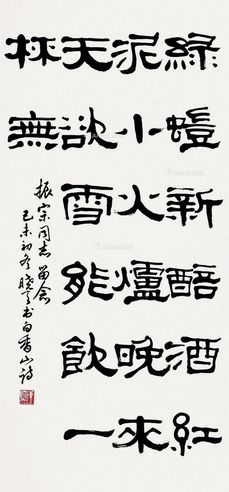 綠螘新醅酒紅
泥小火爐晚來
天欲雪能飲一
杯無
振宋同志留念
己未初冬书白香山诗